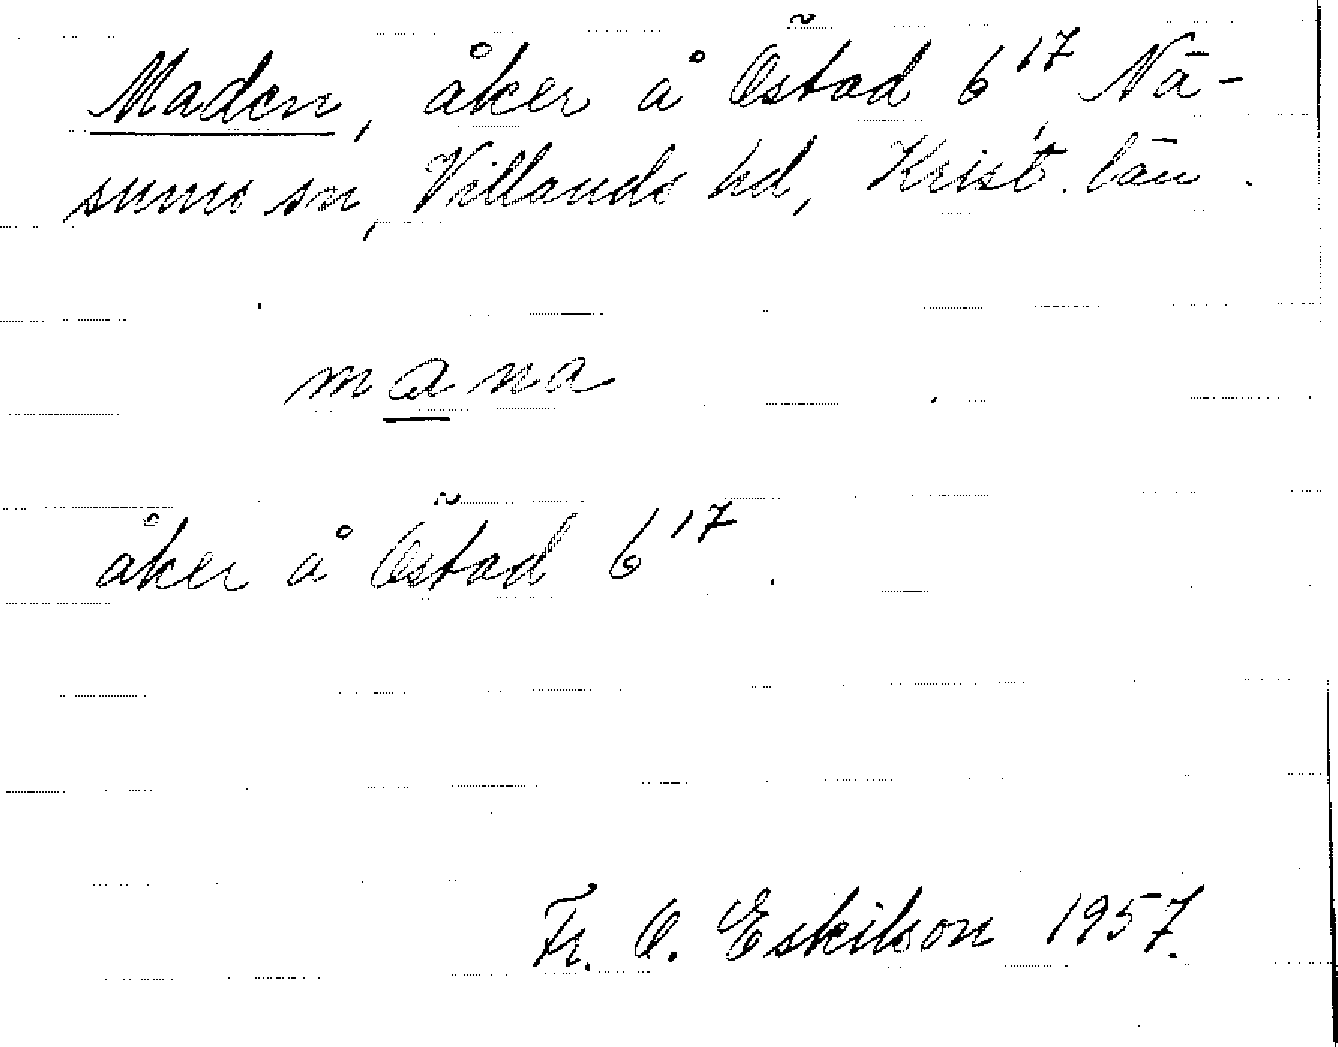 Maden, åker å Östad 6¹⁷ Nä-
sums sn, Villands hd, Krist. län.
mana
åker å Östad 6¹⁷
Fr. O. Eskilson 1957.